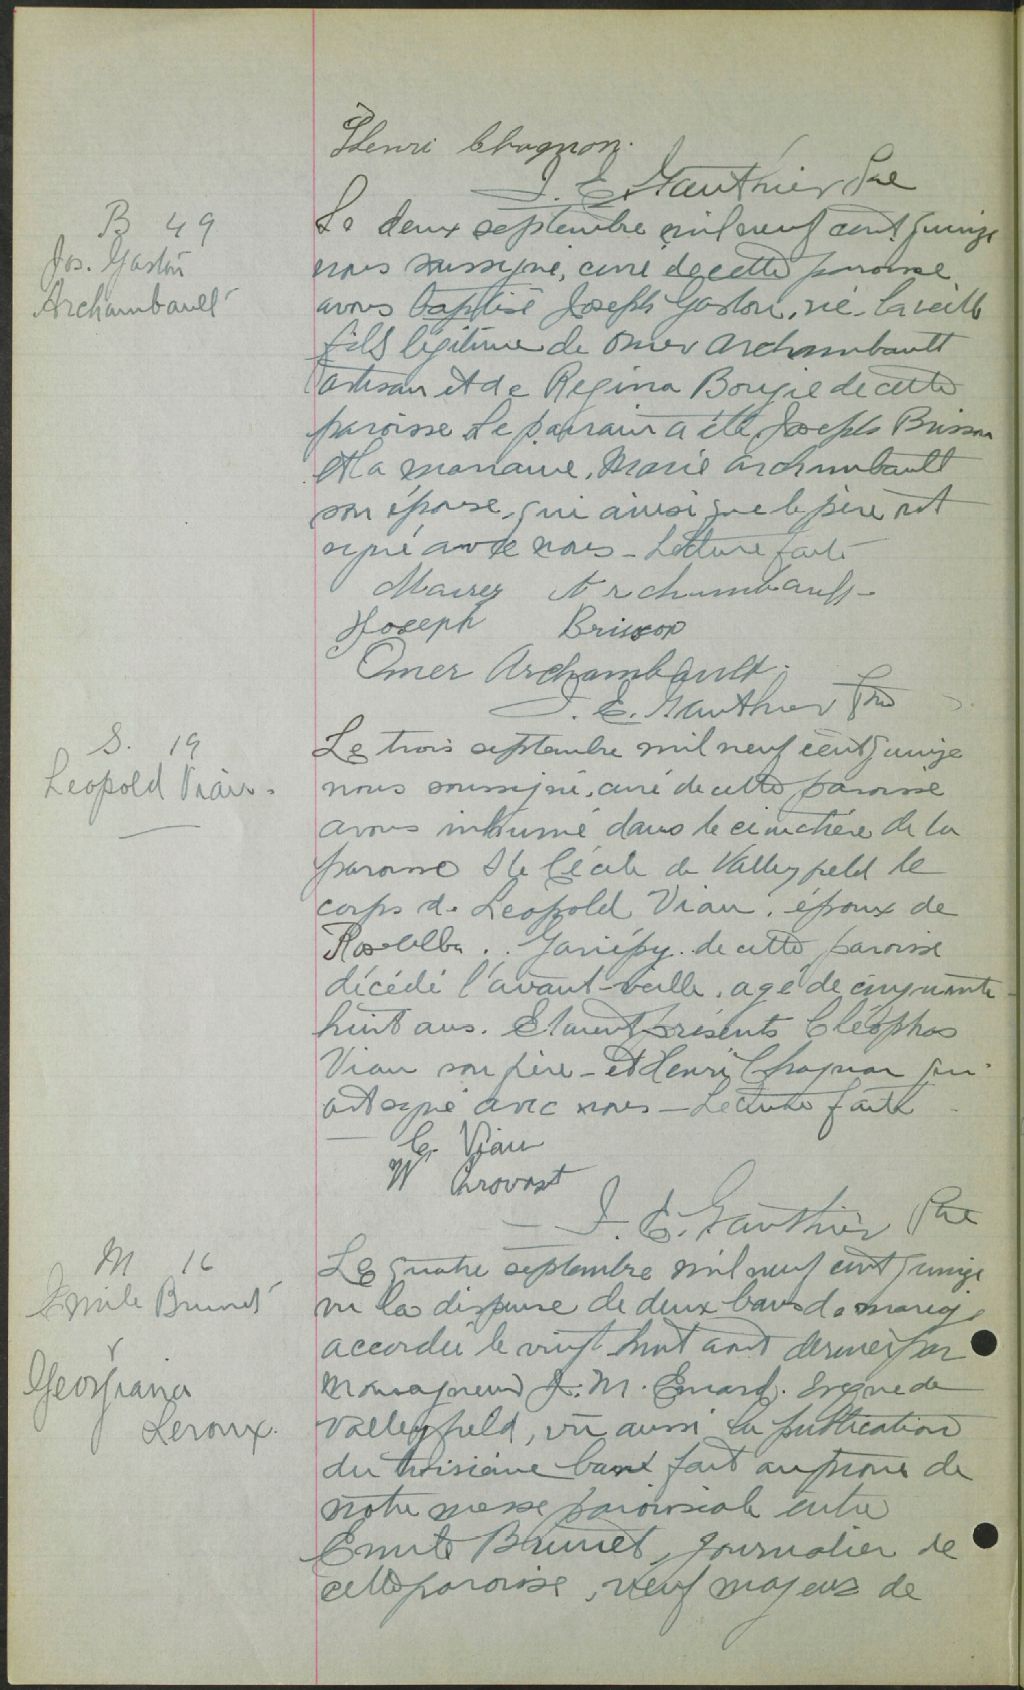 Henri Chagnon.
J. E. Gauthier Ptre
B 49
Jos. Gaston
Archambault
Le deux septembre mil neuf cent quinze
nous soussigné, curé de cette paroisse
avons baptisé Joseph Gaston, né la veille
fils légitime de Omer Archambault
artisan et de Regina Bougie de cette
paroisse. Le parrain a été Joseph Brisson
et la marraine, Marie Archambault
son épouse, qui ainsi que le père ont
signé avec nous - Lecture faite
Archambault
Joseph Brisson
Omer Archambault.
J. E. Gauthier Ptre
S. 19
Leopold Viau.
Le trois septembre mil neuf cent quinze
nous soussigné, curé de cette paroisse
avons inhumé dans le cimetière de la
paroisse Ste Cécile de Valleyfield le
corps de Leopold Viau, époux de
Rose Alba Gariépy de cette paroisse
décédé l'avant-veille, agé de cinquante-
huit ans. Etaient présents Cléophas
Viau son père - et Henri Chagnon qui
ont signé avec nous - Lecture faite
C. Viau
W Provost
J. E. Gauthier Ptre
M 16
Emile Brunet
&
Georgiana
Leroux.
Le quatre septembre mil neuf cent quinze
vu la dispense de deux bans de mariage
accordée le vingt huit aout dernier par
Monseigneur J. M. Emard. Evêque de
Valleyfield, vu aussi la publication
du troisième ban fait au prone de
notre messe paroissiale entre
Emile Brunet, journalier de
cette paroisse, veuf majeur de